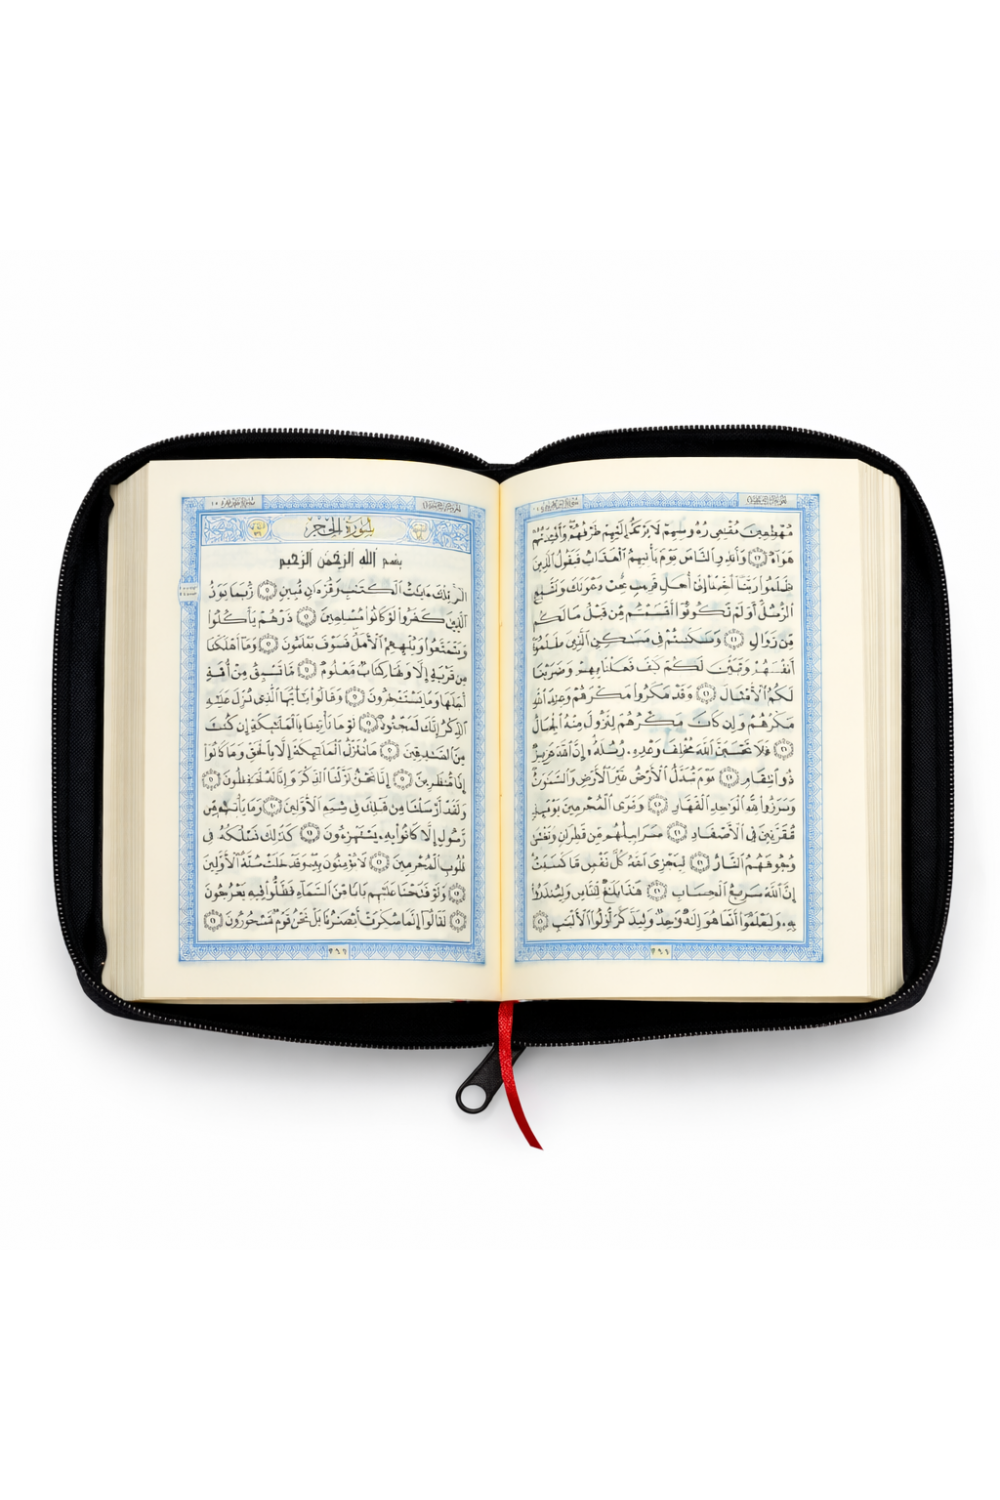 مُهْطِعِينَ مُقْنِعِى رُءُوسِهِمْ لَا يَرْتَدُّ إِلَيْهِمْ طَرْفُهُمْ وَأَفْـِٔدَتُهُمْ
هَوَآءٌ وَأَنذِرِ ٱلنَّاسَ يَوْمَ يَأْتِيهِمُ ٱلْعَذَابُ فَيَقُولُ ٱلَّذِينَ
ظَلَمُوا۟ رَبَّنَآ أَخِّرْنَآ إِلَىٰٓ أَجَلٍ قَرِيبٍ نُّجِبْ دَعْوَتَكَ وَنَتَّبِعِ
ٱلرُّسُلَ أَوَلَمْ تَكُونُوٓا۟ أَقْسَمْتُم مِّن قَبْلُ مَا لَكُم
مِّن زَوَالٍ وَسَكَنتُمْ فِى مَسَـٰكِنِ ٱلَّذِينَ ظَلَمُوٓا۟
أَنفُسَهُمْ وَتَبَيَّنَ لَكُمْ كَيْفَ فَعَلْنَا بِهِمْ وَضَرَبْنَا
لَكُمُ ٱلْأَمْثَالَ وَقَدْ مَكَرُوا۟ مَكْرَهُمْ وَعِندَ ٱللَّهِ
مَكْرُهُمْ وَإِن كَانَ مَكْرُهُمْ لِتَزُولَ مِنْهُ ٱلْجِبَالُ
فَلَا تَحْسَبَنَّ ٱللَّهَ مُخْلِفَ وَعْدِهِۦ رُسُلَهُۥٓ إِنَّ ٱللَّهَ عَزِيزٌ
ذُو ٱنتِقَامٍ يَوْمَ تُبَدَّلُ ٱلْأَرْضُ غَيْرَ ٱلْأَرْضِ وَٱلسَّمَـٰوَٰتُ
وَبَرَزُوا۟ لِلَّهِ ٱلْوَٰحِدِ ٱلْقَهَّارِ وَتَرَى ٱلْمُجْرِمِينَ يَوْمَئِذٍ
مُّقَرَّنِينَ فِى ٱلْأَصْفَادِ سَرَابِيلُهُم مِّن قَطِرَانٍ وَتَغْشَىٰ
وُجُوهَهُمُ ٱلنَّارُ لِيَجْزِىَ ٱللَّهُ كُلَّ نَفْسٍ مَّا كَسَبَتْ
إِنَّ ٱللَّهَ سَرِيعُ ٱلْحِسَابِ هَـٰذَا بَلَـٰغٌ لِّلنَّاسِ وَلِيُنذَرُوا۟
بِهِۦ وَلِيَعْلَمُوٓا۟ أَنَّمَا هُوَ إِلَـٰهٌ وَٰحِدٌ وَلِيَذَّكَّرَ أُو۟لُوا۟ ٱلْأَلْبَـٰبِ
سُورَةُ الحِجْر
بِسْمِ ٱللَّهِ ٱلرَّحْمَـٰنِ ٱلرَّحِيمِ
الٓر تِلْكَ ءَايَـٰتُ ٱلْكِتَـٰبِ وَقُرْءَانٍ مُّبِينٍ رُّبَمَا يَوَدُّ
ٱلَّذِينَ كَفَرُوا۟ لَوْ كَانُوا۟ مُسْلِمِينَ ذَرْهُمْ يَأْكُلُوا۟
وَيَتَمَتَّعُوا۟ وَيُلْهِهِمُ ٱلْأَمَلُ فَسَوْفَ يَعْلَمُونَ وَمَآ أَهْلَكْنَا
مِن قَرْيَةٍ إِلَّا وَلَهَا كِتَابٌ مَّعْلُومٌ مَّا تَسْبِقُ مِنْ أُمَّةٍ
أَجَلَهَا وَمَا يَسْتَـْٔخِرُونَ وَقَالُوا۟ يَـٰٓأَيُّهَا ٱلَّذِى نُزِّلَ عَلَيْهِ
ٱلذِّكْرُ إِنَّكَ لَمَجْنُونٌ لَّوْ مَا تَأْتِينَا بِٱلْمَلَـٰٓئِكَةِ إِن كُنتَ
مِنَ ٱلصَّـٰدِقِينَ مَا نُنَزِّلُ ٱلْمَلَـٰٓئِكَةَ إِلَّا بِٱلْحَقِّ وَمَا كَانُوٓا۟
إِذًا مُّنظَرِينَ إِنَّا نَحْنُ نَزَّلْنَا ٱلذِّكْرَ وَإِنَّا لَهُۥ لَحَـٰفِظُونَ
وَلَقَدْ أَرْسَلْنَا مِن قَبْلِكَ فِى شِيَعِ ٱلْأَوَّلِينَ وَمَا يَأْتِيهِم مِّن
رَّسُولٍ إِلَّا كَانُوا۟ بِهِۦ يَسْتَهْزِءُونَ كَذَٰلِكَ نَسْلُكُهُۥ فِى
قُلُوبِ ٱلْمُجْرِمِينَ لَا يُؤْمِنُونَ بِهِۦ وَقَدْ خَلَتْ سُنَّةُ ٱلْأَوَّلِينَ
وَلَوْ فَتَحْنَا عَلَيْهِم بَابًا مِّنَ ٱلسَّمَآءِ فَظَلُّوا۟ فِيهِ يَعْرُجُونَ
لَقَالُوٓا۟ إِنَّمَا سُكِّرَتْ أَبْصَـٰرُنَا بَلْ نَحْنُ قَوْمٌ مَّسْحُورُونَ